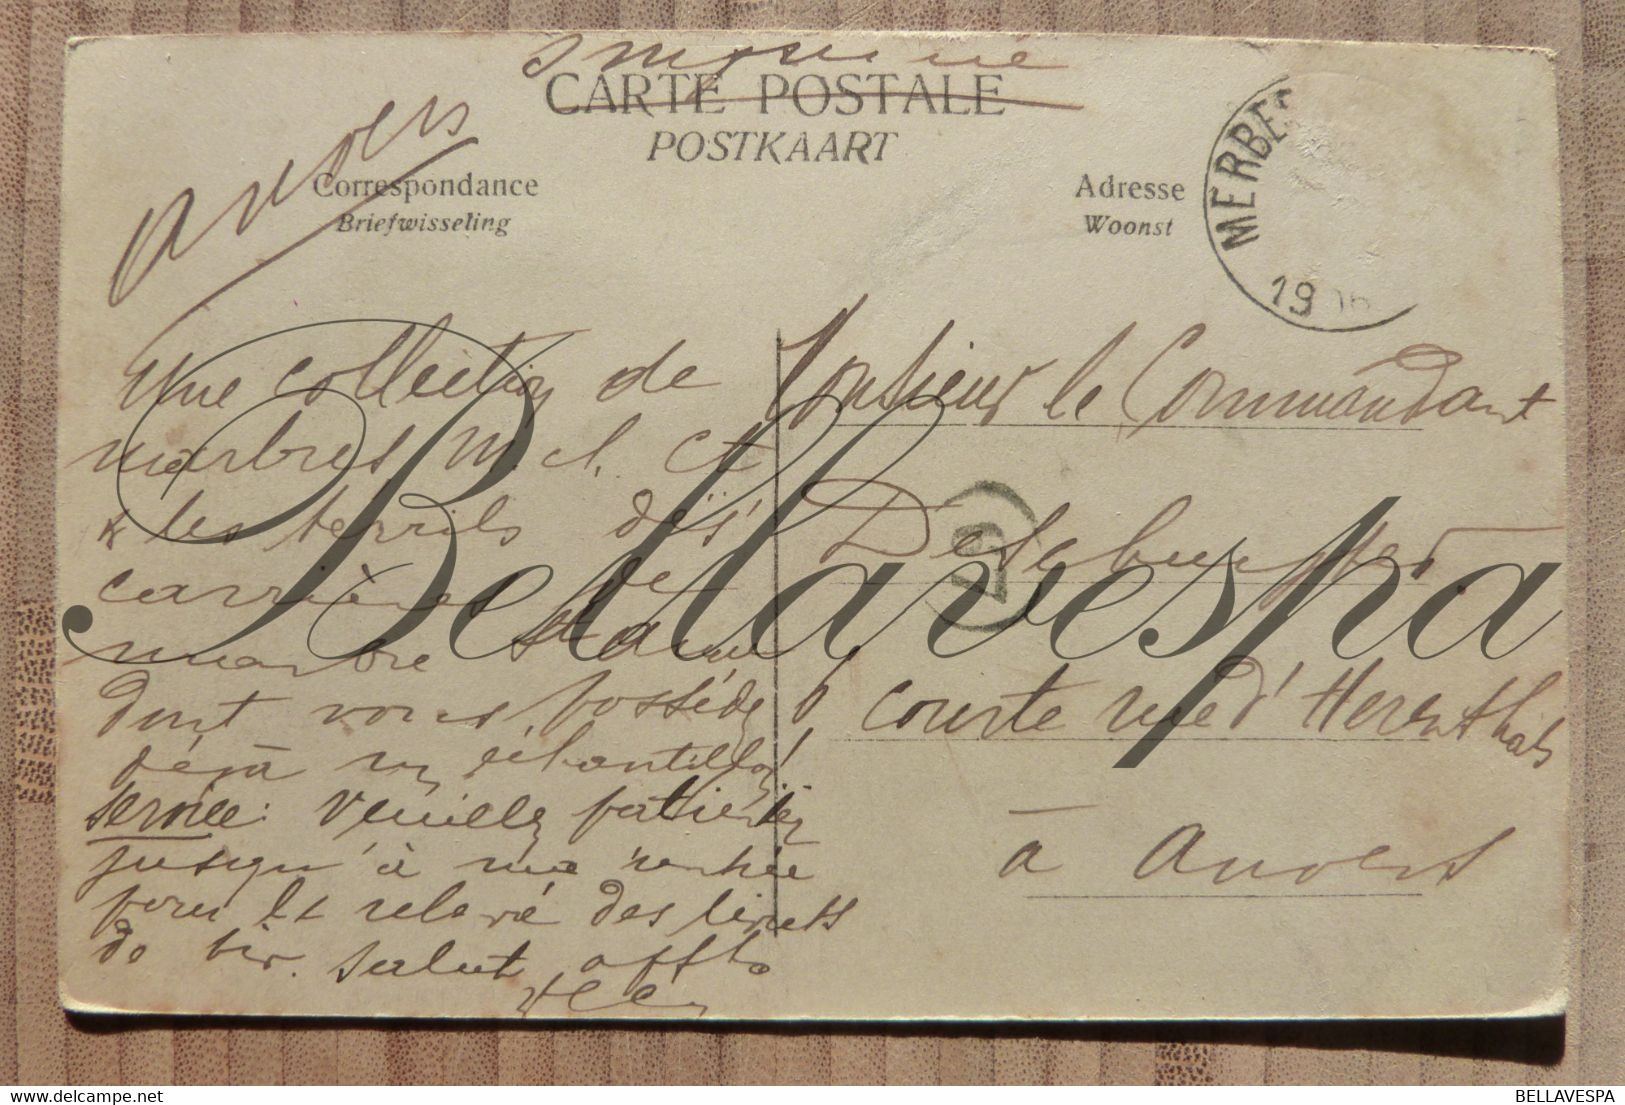 Imprimé
CARTE POSTALE
POSTKAART
Anvers
Correspondance
Briefwisseling
Adresse
Woonst
MERBES
19
Une collection de
marbres m. et
& les terrils des
carrières de
marbre
dont vous possédez
déjà un échantillon
service: Veuillez patientez
jusqu'à ma rentrée
pour le relevé des livrets
de tir. Salut affto
Monsieur le Commandant
courte rue d'Herenthals
à Anvers
Bellavespa
BELLAVESPA